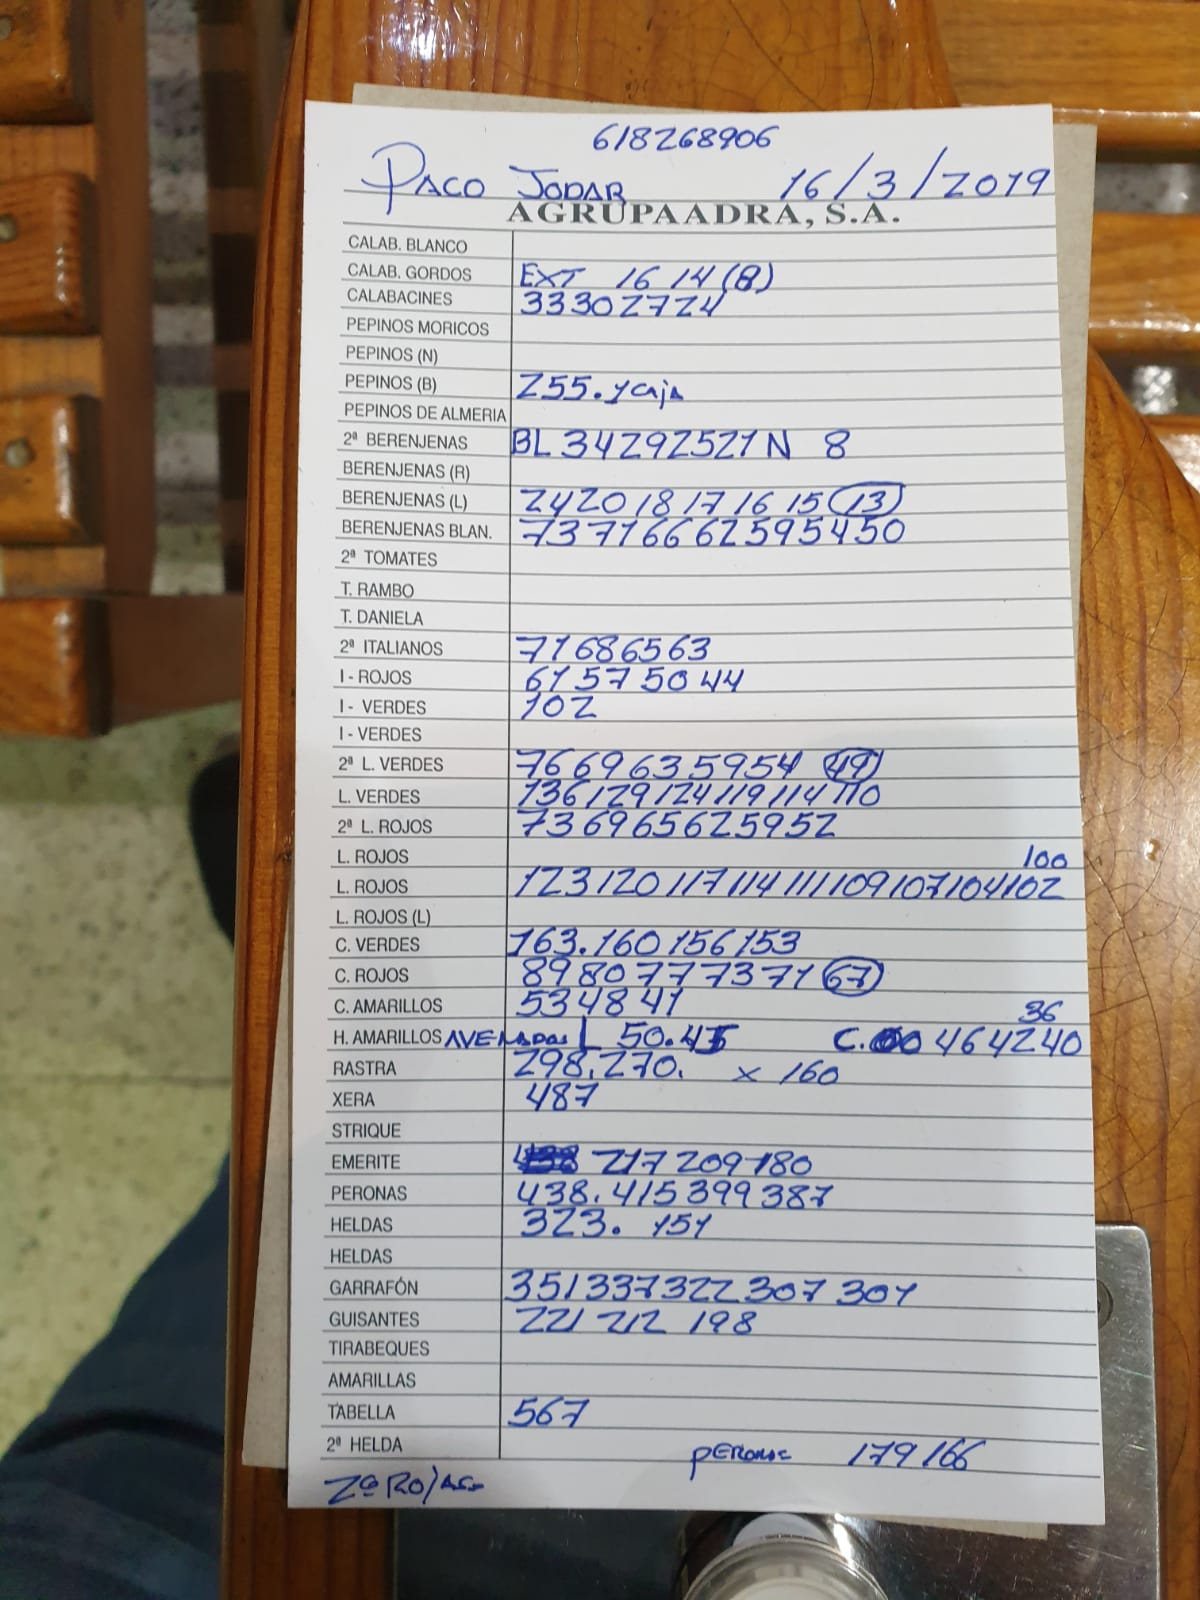 618268906
PACO JODAR 16/3/2019
AGRUPAADRA, S.A.
CALAB. BLANCO
CALAB. GORDOS EXT 16 14 (8)
CALABACINES 33 30 27 24
PEPINOS MORICOS
PEPINOS (N)
PEPINOS (B) 255. y caja
PEPINOS DE ALMERIA
2ª BERENJENAS BL 34 29 25 21 N 8
BERENJENAS (R)
BERENJENAS (L) 24 20 18 17 16 15 13
BERENJENAS BLAN. 73 71 66 62 59 54 50
2ª TOMATES
T. RAMBO
T. DANIELA
2ª ITALIANOS 71 68 65 63
I - ROJOS 61 57 50 44
I - VERDES 102
I - VERDES
2ª L. VERDES 76 69 63 59 54 49
L. VERDES 136 129 124 119 114 110
2ª L. ROJOS 73 69 65 62 59 52
L. ROJOS 100
L. ROJOS 123 120 117 114 111 109 107 104 102
L. ROJOS (L)
C. VERDES 163. 160 156 153
C. ROJOS 89 80 77 73 71 67
C. AMARILLOS 53 48 41 36
H. AMARILLOS L 50. 45 C. 46 42 40
RASTRA 298. 270. x 160
XERA 487
STRIQUE
EMERITE 217 209 180
PERONAS 438. 415 399 387
HELDAS 323. 151
HELDAS
GARRAFÓN 351 337 322 307 301
GUISANTES 221 212 198
TIRABEQUES
AMARILLAS
TABELLA 567
2ª HELDA PERONAS 179 166
2ª RO/